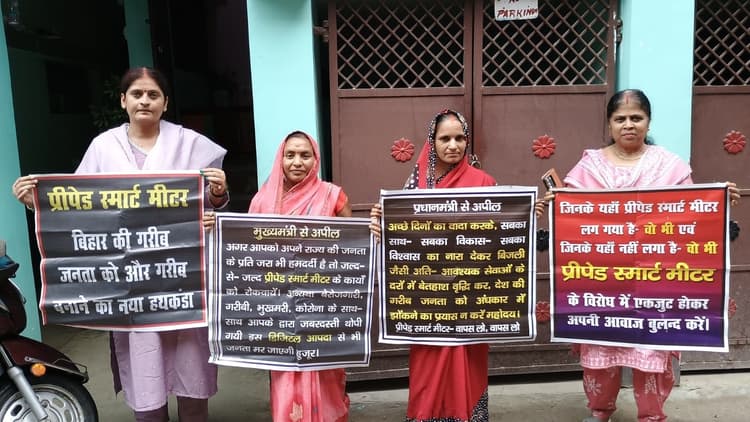 PARKING
प्रीपेड स्मार्ट मीटर
बिहार की गरीब
जनता को और गरीब
बनाने का नया हथकंडा
मुख्यमंत्री से अपील
अगर आपको अपने राज्य की जनता
के प्रति जरा भी हमदर्दी है तो जल्द-
से- जल्द प्रीपेड स्मार्ट मीटर के कार्यों
को रोकवायें। अन्यथा बेरोजगारी,
गरीबी, भुखमरी, कोरोना के साथ-
साथ आपके द्वारा जबरदस्ती थोपी
गयी इस डिजिटल आपदा से भी
जनता मर जाएगी हुजूर।
प्रधानमंत्री से अपील
अच्छे दिनों का वादा करके, सबका
साथ- सबका विकास- सबका
विश्वास का नारा देकर बिजली
जैसी अति- आवश्यक सेवाओं के
दरों में बेतहाशा वृद्धि कर, देश की
गरीब जनता को अंधकार में
झोंकने का प्रयास न करें महोदय।
प्रीपेड स्मार्ट मीटर- वापस लो, वापस लो
जिनके यहाँ प्रीपेड स्मार्ट मीटर
लग गया है- वो भी एवं
जिनके यहाँ नहीं लगा है- वो भी
प्रीपेड स्मार्ट मीटर
के विरोध में एकजुट होकर
अपनी आवाज बुलन्द करें।